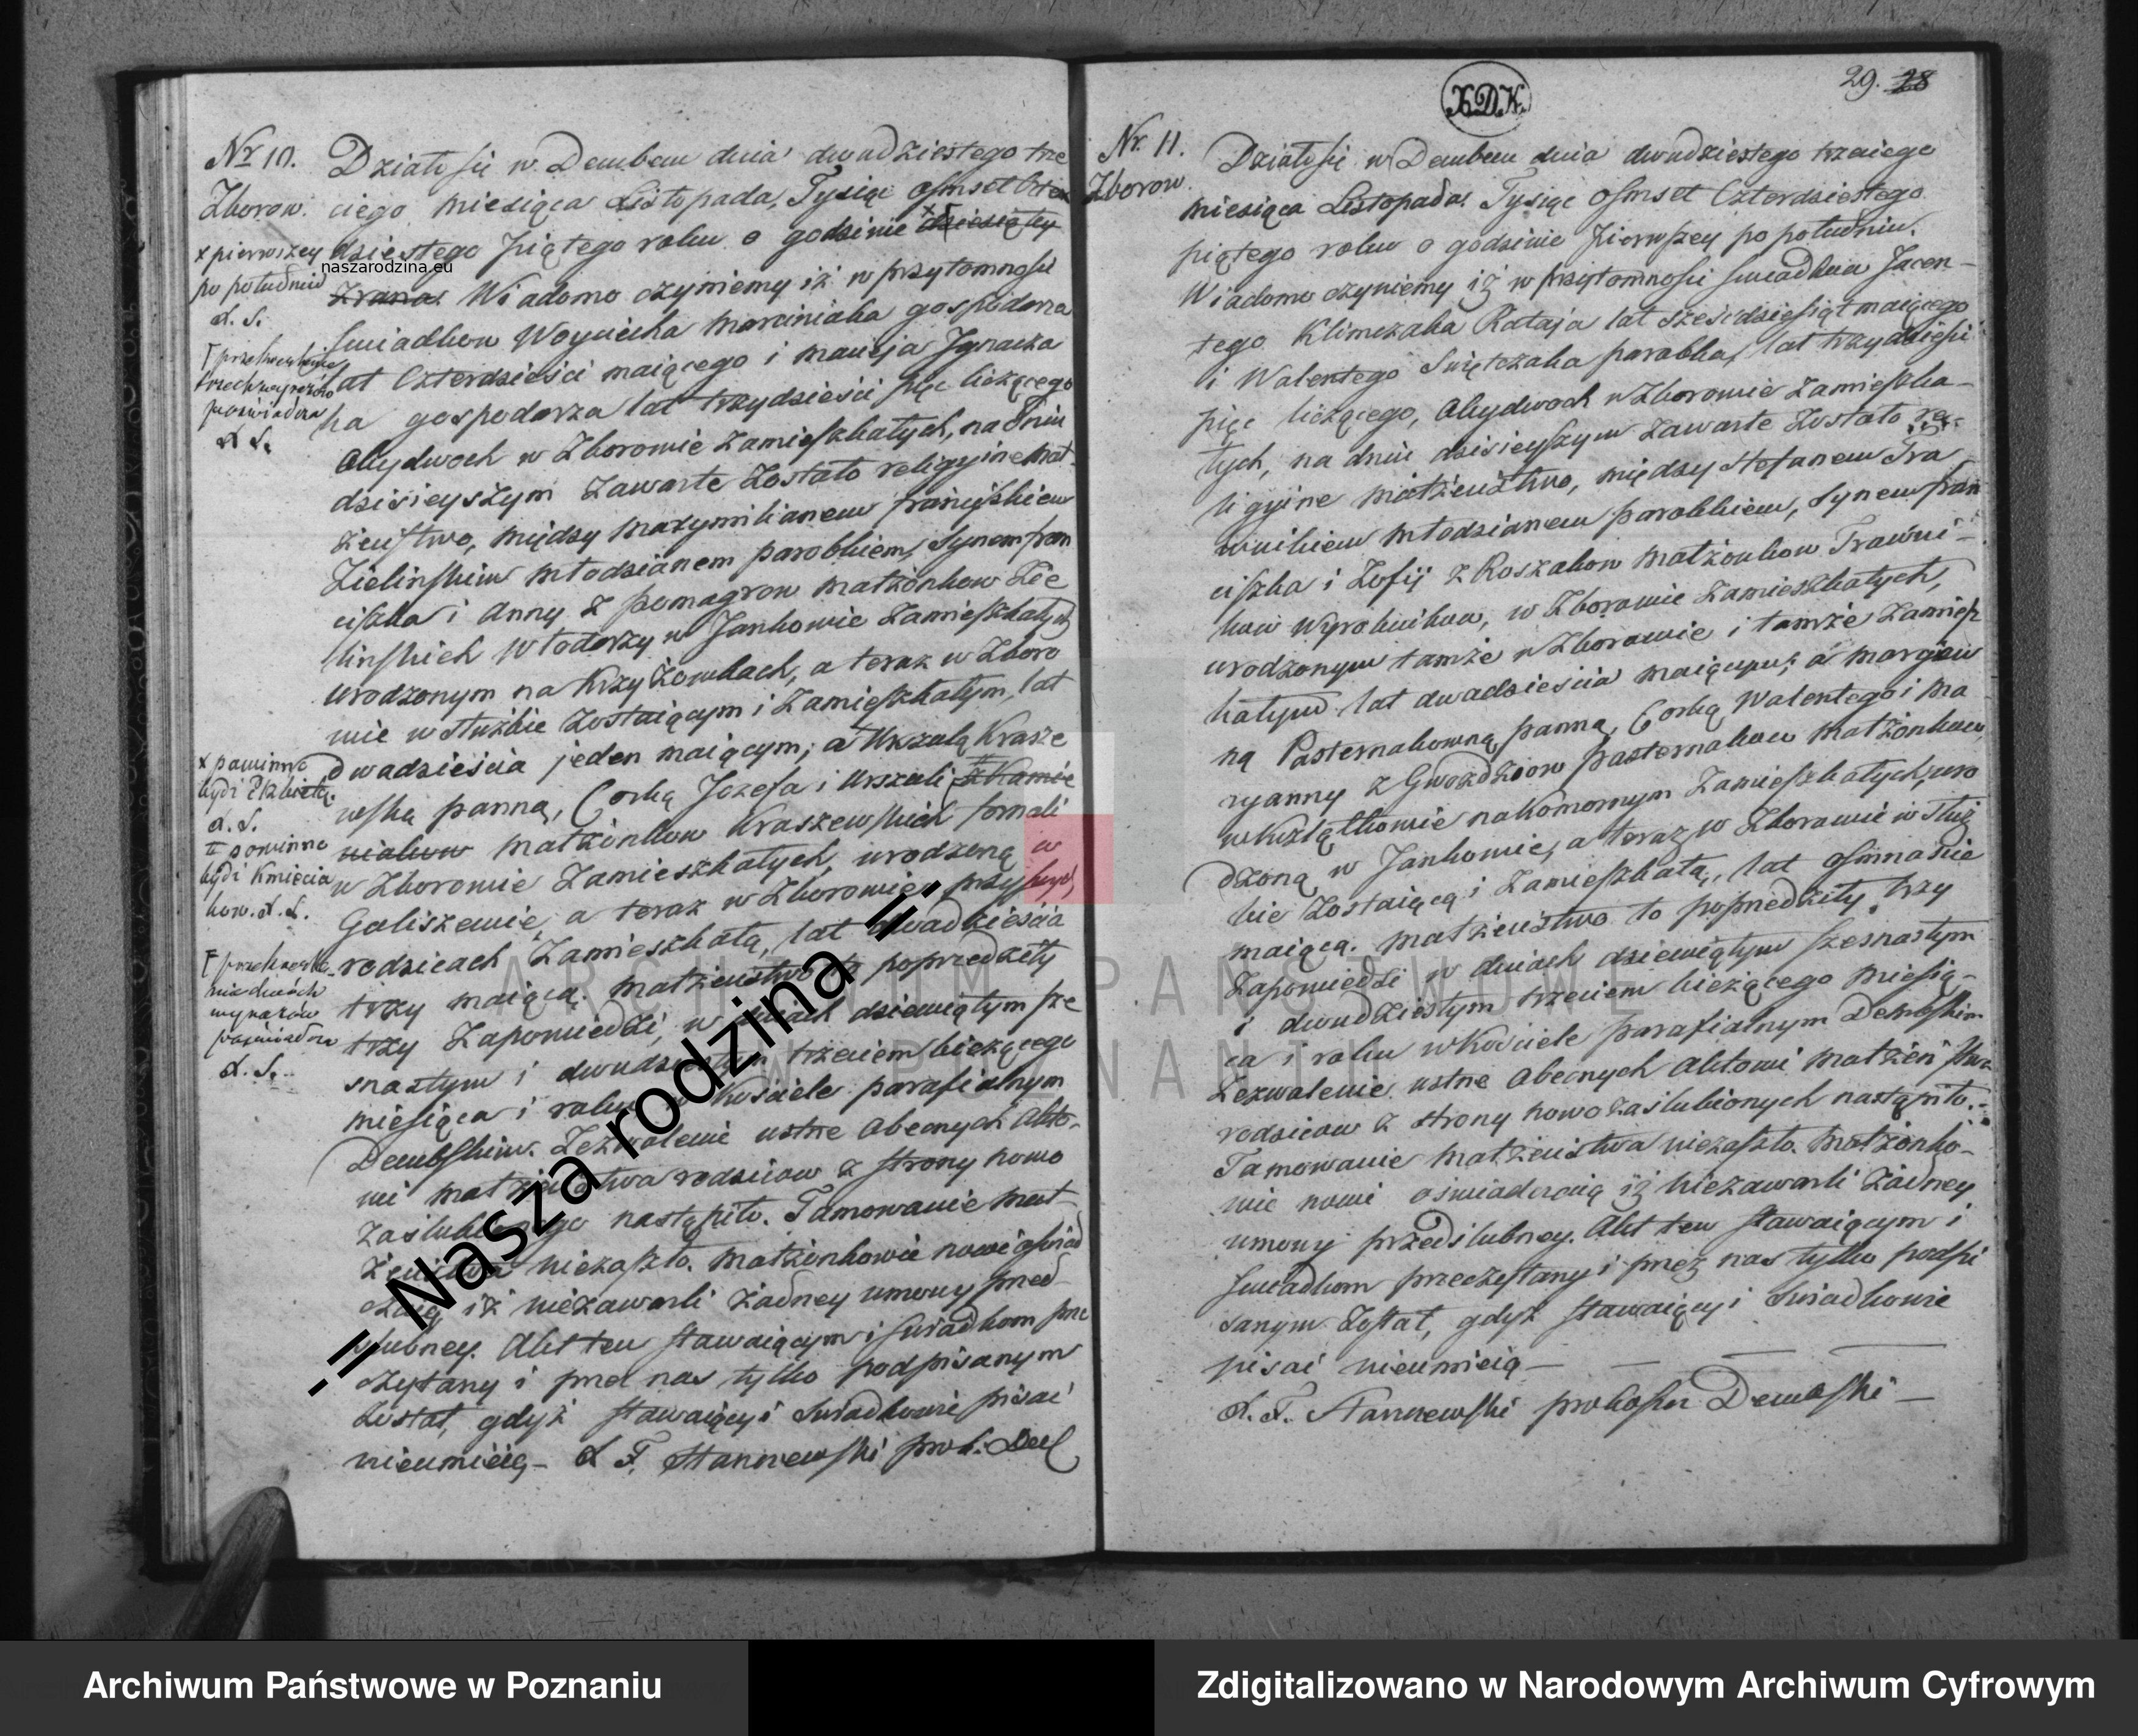 Nr 10.
Zborow.
x pierwszey
po południu
X. S.
przekreślenie
trzech wyrazów
poświadcza
X S.
x powinno
bydź Elzbieta.
X. S.
powinno
bydź Kmiecia
kow. X. S.
przekreśle-
nie dwóch
wyrazów
poświadcza
X. S.
Działo się w Dembem dnia dwudziestego trze
ciego miesiąca Listopada, Tysiąc osmset Czter
dziestego piątego roku o godzinie dziesiątey
zrana. Wiadomo czyniemy iż w przytomności
świadkow Woyciecha Marciniaka gospodarza
lat Czterdzieści maiącego i Macieja Ignacza
ka gospodarza lat trzydzieści pięć liczącego
obydwoch w Zborowie zamieszkałych, na dniu
dzisieyszym zawarte zostało religijne Mał-
żeństwo, między Maxymilianem Franciszkiem
Zielinskim młodzianem parobkiem, Synem Fran
ciszka i Anny z Pomagrow małżonkow Zie
linskich Włodarzy w Jankowie zamieszkałych
urodzonym na Krzyżowkach, a teraz w Zboro
wie w służbie zostaiącym i zamieszkałym, lat
dwadzieścia jeden maiącym; a Urszulą Krasze
wską panną, Corką Jozefa i Urszuli z Kamie
niakow małżonkow Kraszewskich fornali
w Zborowie zamieszkałych, urodzoną w
Galiszewie, a teraz w Zborowie przy swych
rodzicach zamieszkałą, lat dwadzieścia
trzy maiącą. Małżeństwo to poprzedziły
trzy zapowiedzi, w dniach dziewiątym sze
snastym i dwudziestym trzeciem bieżącego
miesiąca i roku w Kościele parafialnym
Dembskim. Zezwolenie ustne obecnych Akto-
wi małżeństwa rodzicow z strony nowo
zaślubionego nastąpiło. Tamowanie mał-
żeństwa niezaszło. Małżonkowie nowi oświad
czaią iż niezawarli żadney umowy przed
ślubney. Akt ten stawaiącym i świadkom prze
czytany i przez nas tylko podpisanym
został, gdyż stawaiący i świadkowie pisać
nieumieią – X F. Stanszewski prob. Dem
29. 28
K.D.K.
Nr. 11.
Zborow.
Działo się w Dembem dnia dwudziestego trzeciego
miesiąca Listopada. Tysiąc osmset Czterdziestego
piątego roku o godzinie pierwszey po południu.
Wiadomo czyniemy iż w przytomności świadkow Jacen-
tego Klimczaka Rataja lat sześćdziesiąt maiącego
i Walentego Świętczaka parobka, lat trzydzieści
pięć liczącego, obydwoch w Zborowie zamieszka-
łych, na dniu dzisieyszym zawarte zostało re-
ligijne małżeństwo, między Stefanem Tra
wnikiem młodzianem parobkiem, Synem Fran
ciszka i Zofij z Roszakow małżonkow Trawni-
kow wyrobnikow, w Zborowie zamieszkałych,
urodzonym tamże w Zborowie i tamże zamiesz
kałym lat dwadzieścia maiącym; a Maryan
ną Pasternakowną panną, Corką Walentego i Ma
ryanny z Gwozdziow Pasternakow małżonkow,
w Kuźlątkowie na Komornym zamieszkałych, uro
dzoną w Jankowie, a teraz w Zborowie w służ
bie zostaiącą i zamieszkałą, lat osmnaście
maiącą. Małżeństwo to poprzedziły trzy
zapowiedzi w dniach dziewiątym szesnastym
i dwudziestym trzeciem bieżącego miesią-
ca i roku w Kościele parafialnym Dembskim
Zezwolenie ustne obecnych Aktowi małżeństwa
rodzicow z strony nowo zaślubionych nastąpiło.
Tamowanie małżeństwa niezaszło. Małżonko-
wie nowi oświadczaią iż niezawarli żadney
umowy przedślubney. Akt ten stawaiącym i
świadkom przeczytany i przez nas tylko podpi
sanym został, gdyż stawaiący i świadkowie
pisać nieumieią –
X. F. Stanszewski proboszcz Dembski –
naszarodzina.eu
.:= Nasza rodzina =:.
ARCHIWUM PAŃSTWOWE
W POZNANIU
Archiwum Państwowe w Poznaniu
Zdigitalizowano w Narodowym Archiwum Cyfrowym